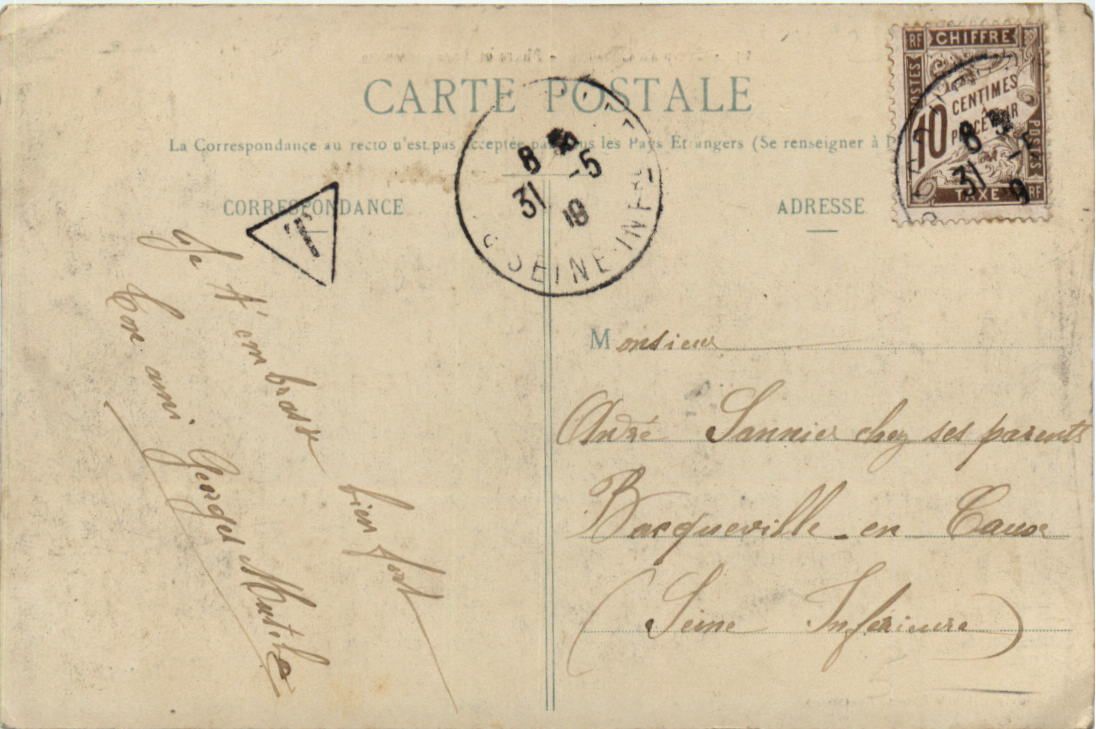 CARTE POSTALE
La Correspondance au recto n'est pas acceptée par tous les Pays Etrangers (Se renseigner à
CORRESPONDANCE
ADRESSE
T
8 -5
31 19
SEINE INF
RF CHIFFRE
POSTES
10 CENTIMES
À
PERCEVOIR
POSTES
TAXE RF
8
31 9
Je t'embrasse bien fort
Ton ami Georges
Monsieur
André Sannier chez ses parents
Bacqueville-en Caux
(Seine Inférieure)